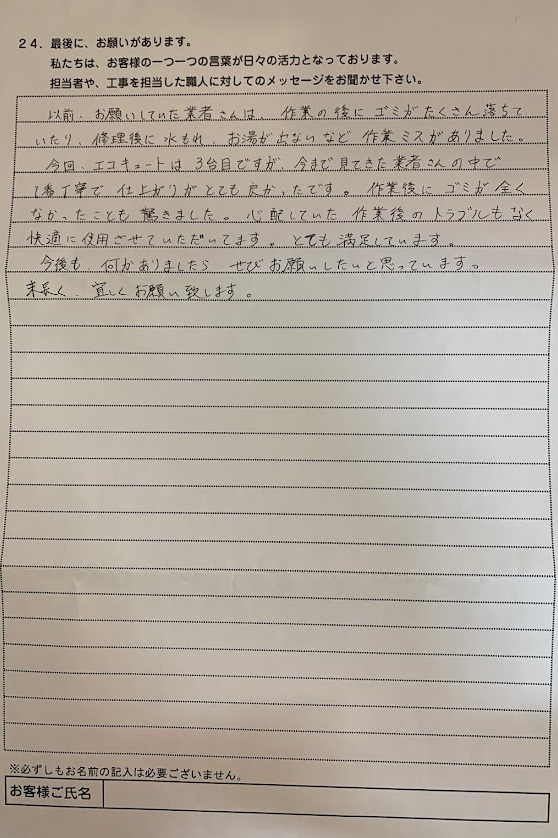 24．最後に、お願いがあります。
私たちは、お客様の一つ一つの言葉が日々の活力となっております。
担当者や、工事を担当した職人に対してのメッセージをお聞かせ下さい。
以前、お願いしていた業者さんは、作業の後にゴミがたくさん落ちて
いたり、修理後に水もれ、お湯が出ないなど作業ミスがありました。
今回、エコキュートは3台目ですが、今まで見てきた業者さんの中で
1番丁寧で仕上がりがとても良かったです。作業後にゴミが全く
なかったことも驚きました。心配していた作業後のトラブルもなく
快適に使用させていただいてます。とても満足しています。
今後も、何かありましたらぜひお願いしたいと思っています。
末長く、宜しくお願い致します。
※必ずしもお名前の記入は必要ございません。
お客様ご氏名